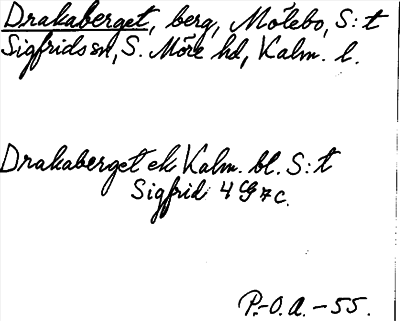 Drakaberget, berg, Mölebo, S:t
Sigfrids sn, S. Möre hd, Kalm. l.
Drakaberget ek Kalm. bl. S:t
Sigfrid 4G7c.
P.-O.A. -55.